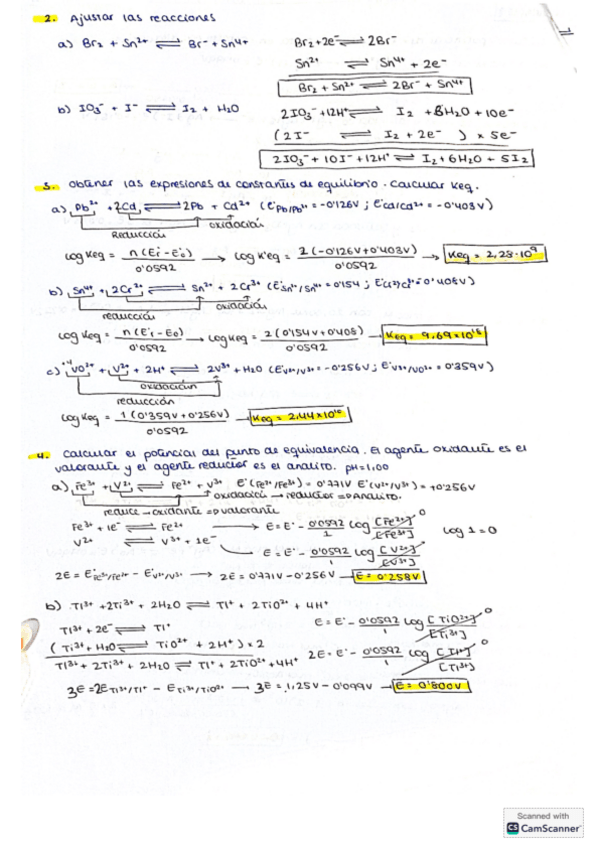 2. Ajustar las reacciones
a) Br₂ + Sn²⁺ ⇌ Br⁻ + Sn⁴⁺
Br₂ + 2e⁻ ⇌ 2Br⁻
Sn²⁺ ⇌ Sn⁴⁺ + 2e⁻
Br₂ + Sn²⁺ ⇌ 2Br⁻ + Sn⁴⁺
b) IO₃⁻ + I⁻ ⇌ I₂ + H₂O
2IO₃⁻ + 12H⁺ ⇌ I₂ + 6H₂O + 10e⁻
(2I⁻ ⇌ I₂ + 2e⁻) x 5e⁻
2IO₃⁻ + 10I⁻ + 12H⁺ ⇌ I₂ + 6H₂O + 5I₂
3. Obtener las expresiones de constantes de equilibrio. Calcular Keq.
a) Pb²⁺ + 2Cd ⇌ 2Pb + Cd²⁺ (E°Pb/Pb²⁺ = -0'126V ; E°Cd/Cd²⁺ = -0'403V)
oxidación
Reducción
log Keq = n(E₁-E₂)/0'0592 → log Keq = 2(-0'126V+0'403V)/0'0592 → Keq = 2,28·10⁹
b) Sn⁴⁺ + 2Cr²⁺ ⇌ Sn²⁺ + 2Cr³⁺
oxidación
reducción
log Keq = n(E₁-E₀)/0'0592 → log Keq = 2(0'154V+0'408)/0'0592 → Keq = 9,69×10¹⁸
c) VO²⁺ + V²⁺ + 2H⁺ ⇌ 2V³⁺ + H₂O
oxidación
reducción
log Keq = 1(0'359V+0'256V)/0'0592 → Keq = 2,44×10¹⁰
4. Calcular el potencial del punto de equivalencia. El agente oxidante es el
valorante y el agente reductor es el analito. pH=1,00
a) Fe³⁺ + V²⁺ ⇌ Fe²⁺ + V³⁺ E°(Fe³⁺/Fe²⁺) = 0'771V E°(V²⁺/V³⁺) = +0'256V
oxidación → reductor = Analito.
reduce → oxidante = valorante
Fe³⁺ + 1e⁻ ⇌ Fe²⁺ → E = E° - 0'0592/1 log [Fe²⁺]/[Fe³⁺] 0 log 1 = 0
V²⁺ ⇌ V³⁺ + 1e⁻
E = E° - 0'0592/1 log [V²⁺]/[V³⁺]
2E = E°Fe³⁺/Fe²⁺ - E°V²⁺/V³⁺ → 2E = 0'771V - 0'256V → E = 0'258V
b) Tl³⁺ + 2Ti³⁺ + 2H₂O ⇌ Tl⁺ + 2TiO²⁺ + 4H⁺
Tl³⁺ + 2e⁻ ⇌ Tl⁺
E = E° - 0'0592/1 log [TiO²⁺]/[Ti³⁺] 0
(Ti³⁺ + H₂O ⇌ TiO²⁺ + 2H⁺) x 2
Tl³⁺ + 2Ti³⁺ + 2H₂O ⇌ Tl⁺ + 2TiO²⁺ + 4H⁺
2E = E° - 0'0592/1 log [Tl⁺]/[Tl³⁺] 0
3E = 2E Tl³⁺/Tl⁺ - E Ti³⁺/TiO²⁺ → 3E = 1,25V - 0'099V → E = 0'800V
Scanned with
CS CamScanner